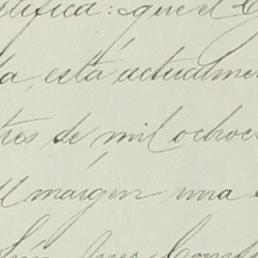 tifica: que el
da, está actualmen
tres de mil ochoc
al margen una